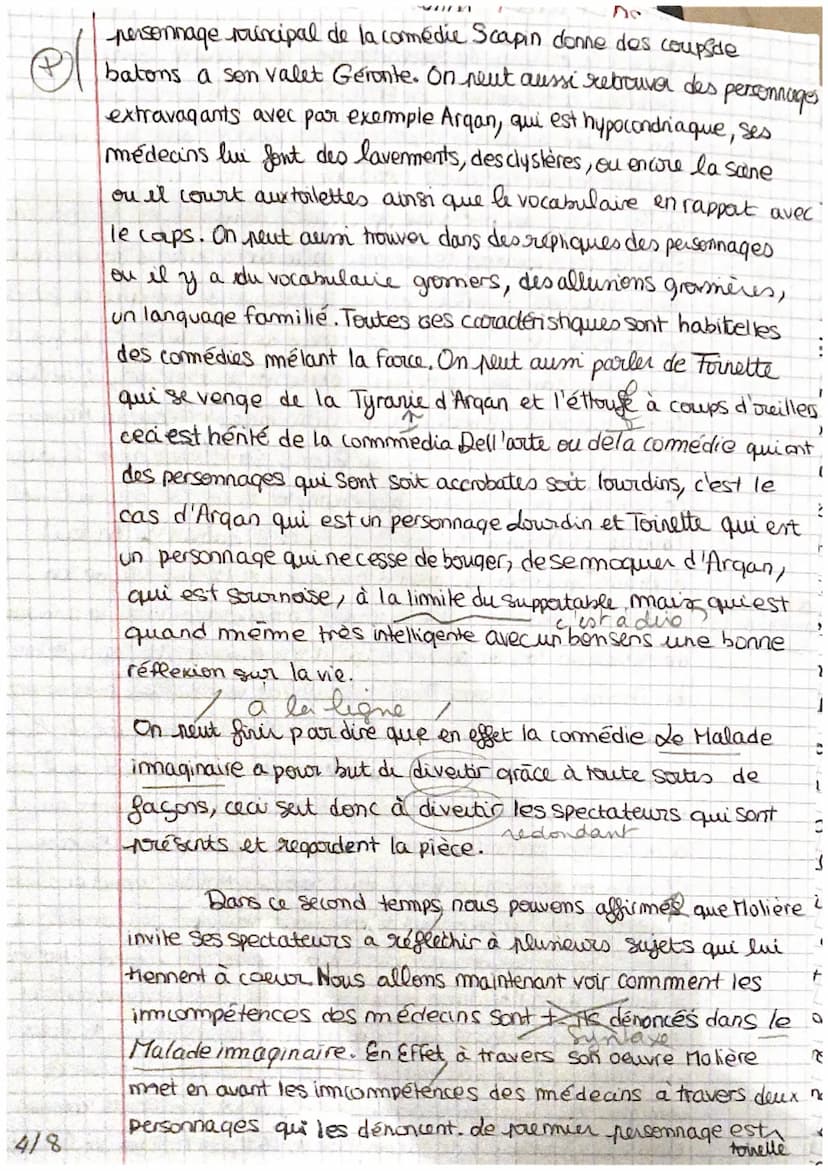 personnage principal de la comédie Scapin donne des coups de
P
batons a son valet Géronte. On peut aussi retrouver des personnages
extravagants avec par exemple Argan, qui est hypocondriaque, ses
médecins lui font des lavements, des clystères, ou encore la scène
ou il court aux toilettes ainsi que le vocabulaire en rapport avec
le corps. On peut aussi trouver dans des répliques des personnages
ou il y a du vocabulaire grossiers, des allusions grossières,
un language familié. Toutes ces caractéristiques sont habitelles
des comédies mêlant la farce. On peut aussi parler de Toinette
qui se venge de la Tyranie d'Argan et l'éttouffe à coups d'oreillers
ceci est hérité de la commmedia Dell'arte ou de la comédie qui ont
des personnages qui sont soit accrobates soit lourdins, c'est le
cas d'Argan qui est un personnage lourdin et Toinette qui est
un personnage qui ne cesse de bouger, de se moquer d'Argan,
qui est sournoise, à la limite du supportable, mais qui est
c'est à dire
quand même très intelligente avec un bon sens une bonne
réflexion sur la vie.
/ à la ligne /
On peut finir par dire que en effet la comédie Le Malade
imaginaire a pour but de divertir grâce à toute sortes de
façons, ceci sert donc à divertir les spectateurs qui sont
redondant
présents et regardent la pièce.
Dans ce second temps, nous pouvons affirmer que Molière
invite ses spectateurs a réflechir à plusieurs sujets qui lui
tiennent à coeur. Nous allons maintenant voir comment les
imcompétences des médecins sont dénoncés dans le
syntaxe
Malade imaginaire. En Effet, à travers son oeuvre Molière
met en avant les imcompétences des médecins à travers deux
personnages qui les dénoncent. Le premier personnage est
toinette
4/8